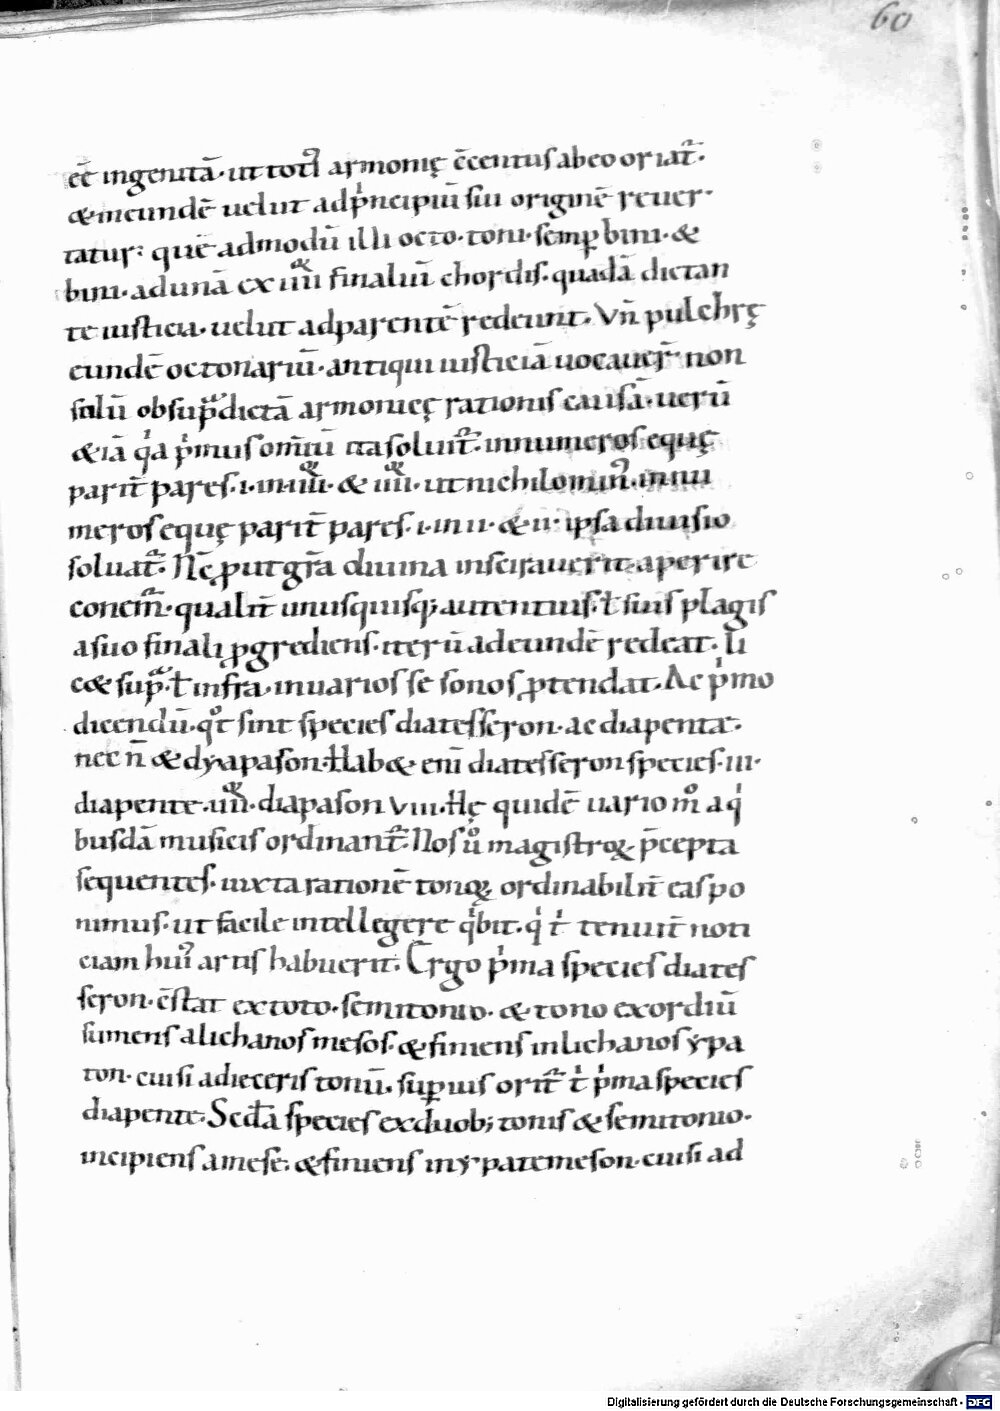 60
ēē ingenitā· ut toti᷒ armonię c̄centus ab eo oriat᷑·
& in eundē uelut ad p̍ncipiū sui originē reuer·
tatur; quē admodū illi octo· toni· semꝑ bini· &
bini· ad unā ex iiii finaliū chordis· quadā dictan
te iusticia· uelut ad parentē redeunt. Vn̄ pulchrę
eundē octonariū· antiqui iusticiā uocauer̄· non
solū ob supͣdictā armonicę rationis causā· uerū
& iā q̍a p̍mus om̄iū ita soluit᷑· in numeros equę
parit̄ pares· i· in· iiii· & iiii· ut nichilomin᷒· in nu
meros equę parit̄ pares· i· in ii· & ii· ipsa diuisio
soluat᷑. Nc̄ ꝓut gr̄a diuina inspirauerit· aperire
conem᷑· qualit̄ unusquisq; autentius· ł suus plagis
a suo finali ꝓgrediens· iterū ad eundē redeat· li
c& supͣ· ł infra· in uarios se sonos ꝓtendat. Ac p̍mo
dicendū· qͦt sint species diatesseron· ac diapente·
nec n̄ & dyapason. Hab& eni᷒ diatesseron species· iii·
diapente· iiii· diapason viii. Hę quidē uario mͦ a q̍
busdā musicis ordinant᷑. Nos uͦ magistroꝝ p̄cepta
sequentes· iuxta rationē tonoꝝ ordinabilit̄ eas po
nimus· ut facile intellegere q̍bit· q̍ ł tenuit̄ noti
ciam hui᷒ artis habuerit. Ergo p̍ma species diates
seron· c̄stat ex toto· semitonio· & tono exordiū
sumens a lichanos mesos· & finiens in lichanos ypa
ton· cui si adieceris tonū· superius orit᷑ ł p̍ma species
diapente. Scd̄a species ex duob; tonis & semitonio·
incipiens a mese; & finiens in ypate meson· cui si ad
Digitalisierung gefördert durch die Deutsche Forschungsgemeinschaft - DFG